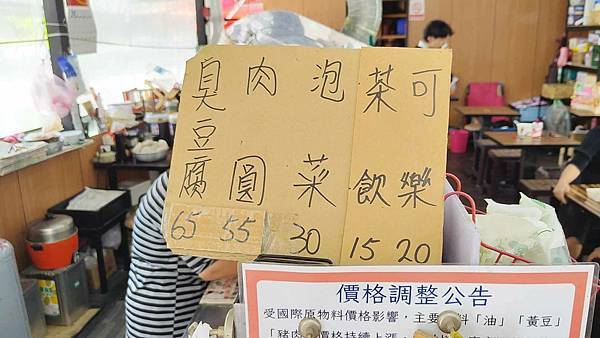 臭豆腐 65
肉圓 55
泡菜 30
茶飲 15
可樂 20
價格調整公告
受國際原物料價格影響，主要 料「油」「黃豆」
「豬肉 價格持續上漲，